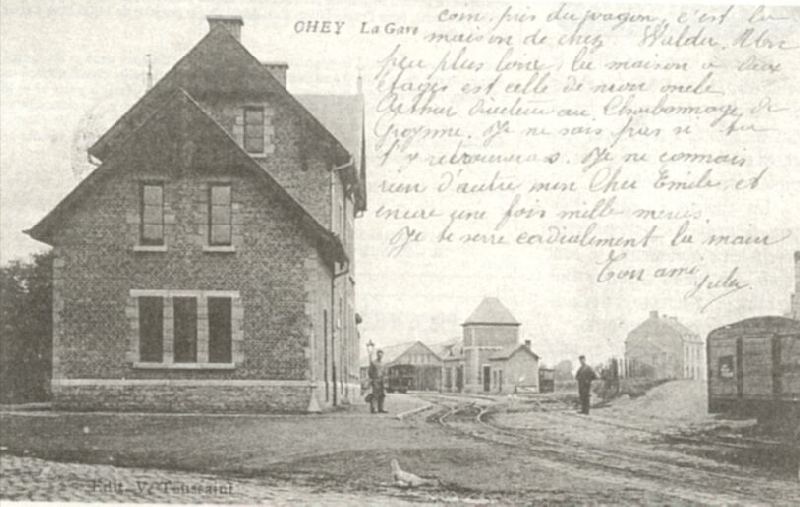 OHEY La Gare
coin, près du wagon, c'est la
maison de chez Waldu. Un
peu plus loin, la maison à deux
étages est celle de mon oncle
Arthur Directeur au Charbonnage de
Je ne sais pas si tu
t'y retrouveras. Je ne connais
rien d'autre mon Cher Emile, et
encore une fois mille mercis.
Je te serre cordialement la main
Ton ami
Jules
Edit. V. Toussaint